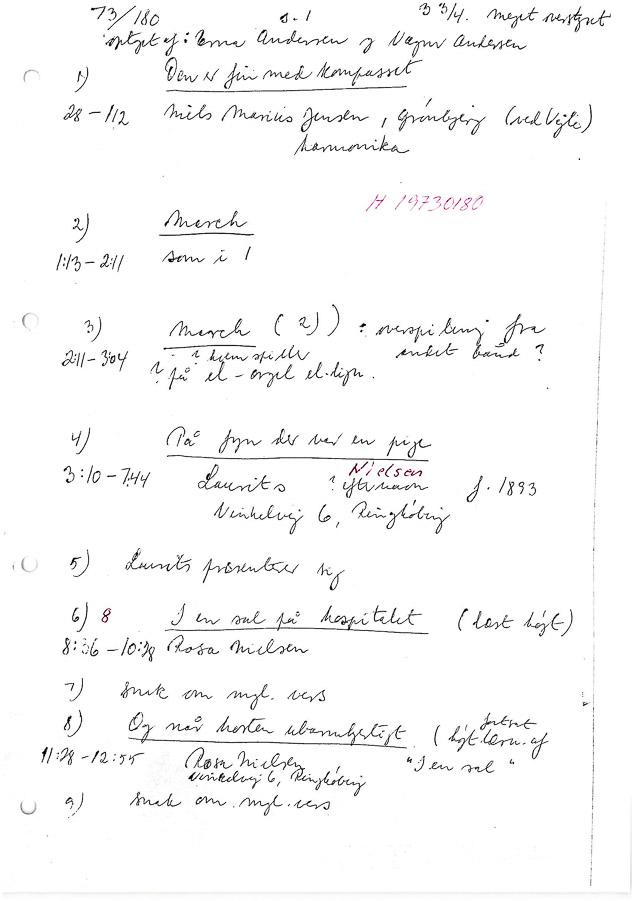 73/180 s. 1 3 3/4. meget nerslidt
optaget af: Erna Andersen og Vagn Andersen
1) Den er fin med kompasset
28 - 112 Niels Marius Jensen, Grønbjerg (ved Vejle)
harmonika
H 19730180
2) March
1:13 - 2:11 som i 1
3) March (2)) : overspilning fra
2:11 - 3:04 ? hjem spille enkelt bånd ?
? på el-orgel el.lign.
4) På Fyn der var en pige
Nielsen
3:10 - 7:44 Laurits ? efternavn f. 1893
Vinkelvej 6, Ringkøbing
5) Laurits præsenterer sig
6) 8 I en sal på hospitalet (læst højt)
8:36 - 10:28 Rosa Nielsen
7) snak om mgl. vers
fortsat
8) Og når høsten ubarmhjertigt (højtlæsn. af
11:28 - 12:55 Rosa Nielsen, "I en sal"
Vinkelvej 6, Ringkøbing
9) snak om mgl. vers